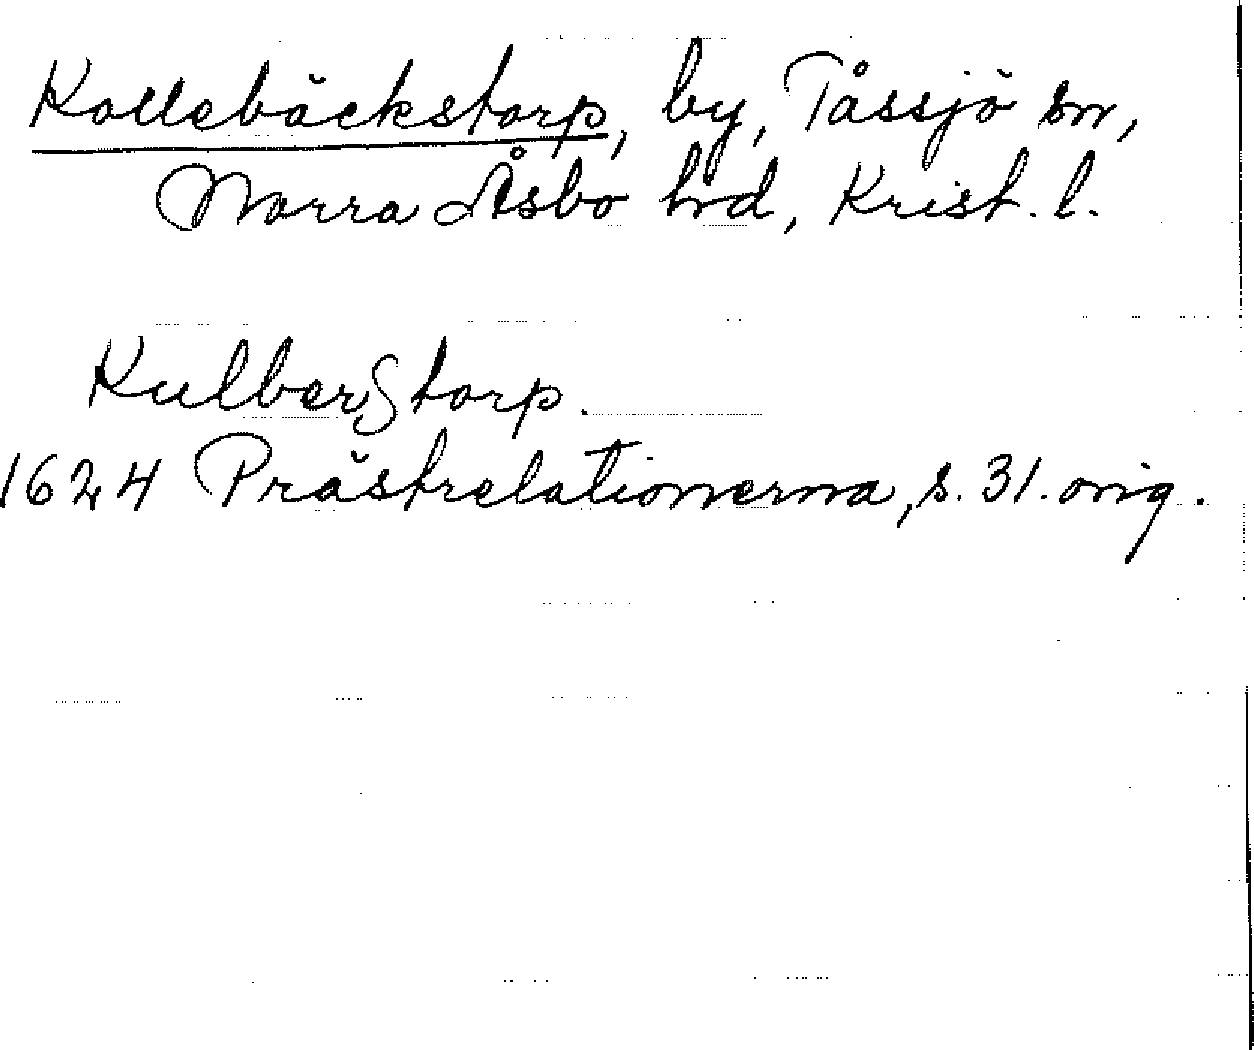 Kollebäckstorp, by, Tåssjö sn,
Norra Åsbo hrd, Krist. l.
Kulberstorp.
1624 Prästrelationerna, s. 31. orig.